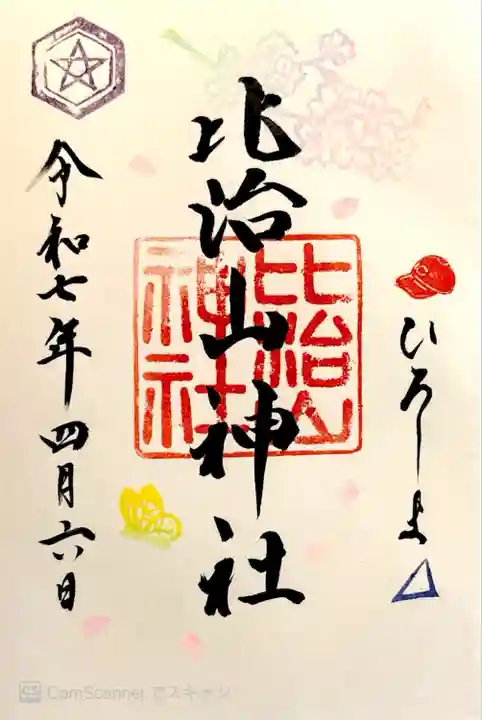 ひろしま
比治山神社
比治山
神社
令和七年四月六日
CS CamScanner でスキャン